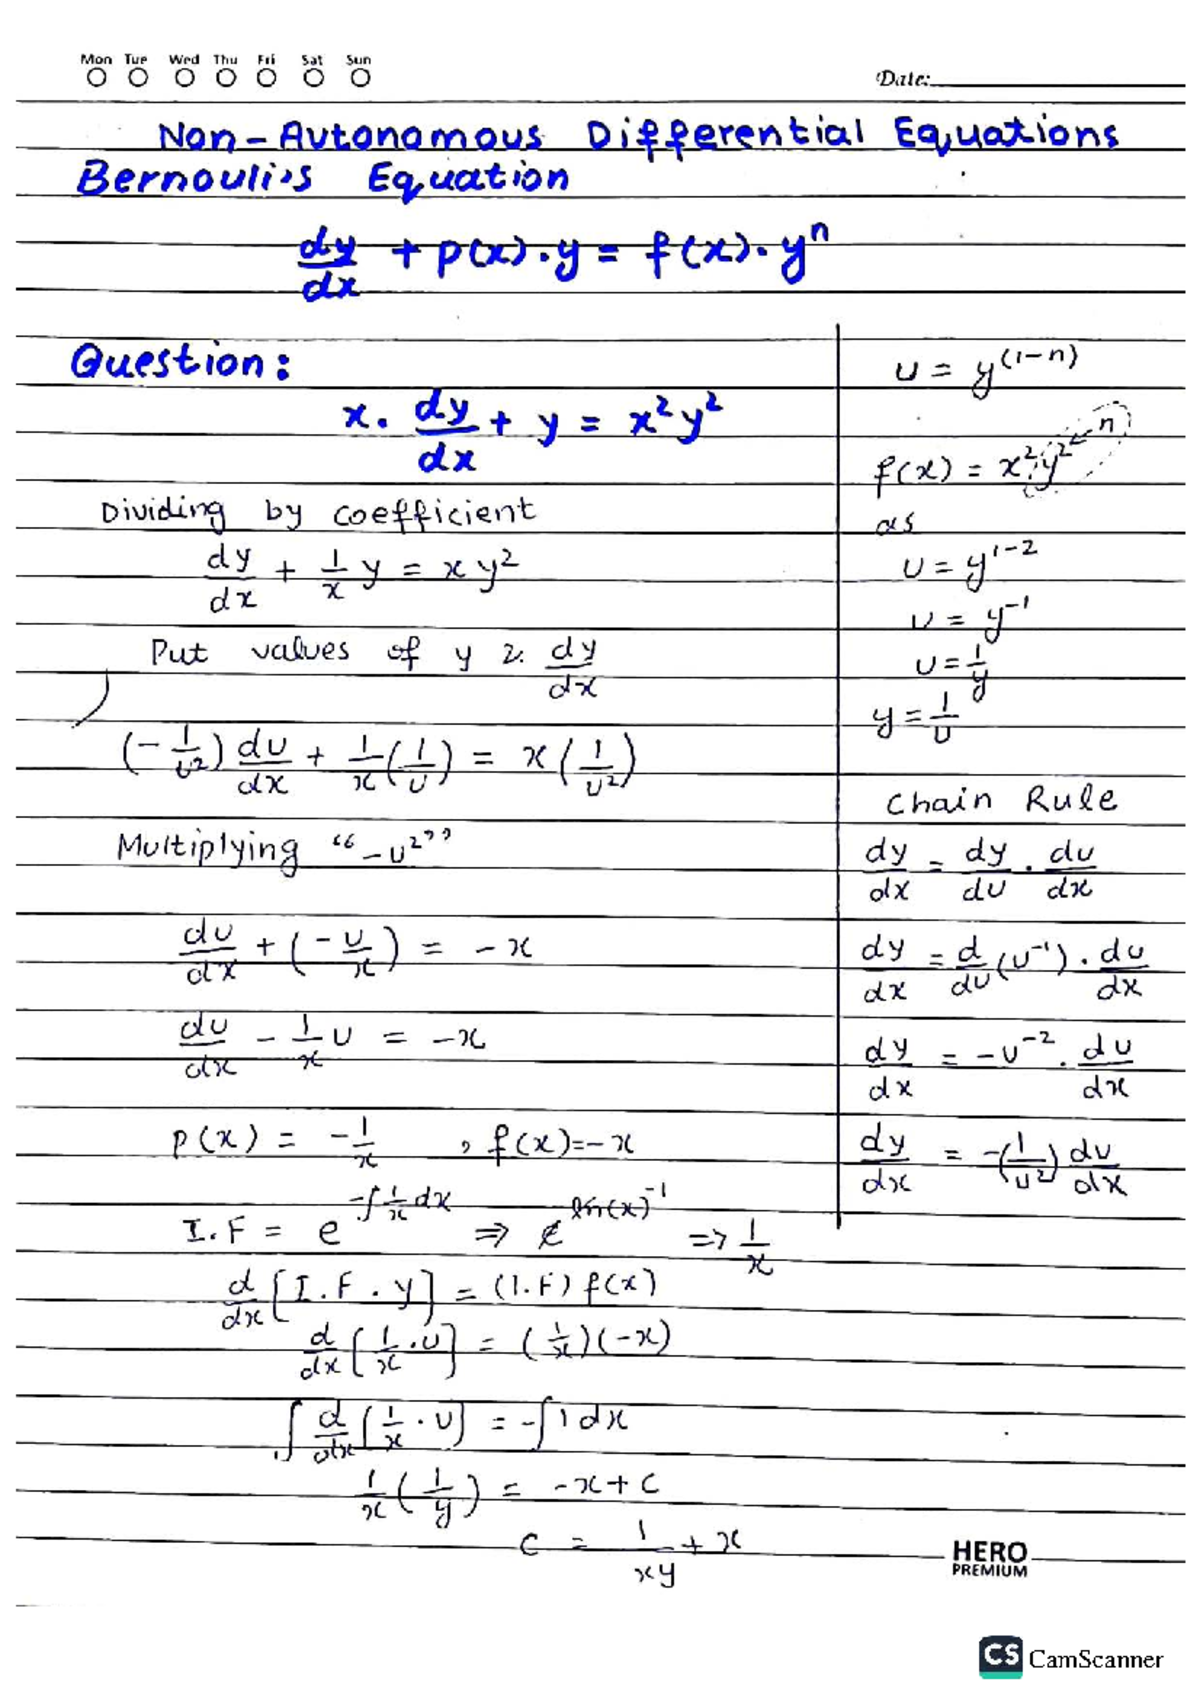 Mon Tue Wed Thu Fri Sat Sun
Date:
Non-Autonomous Differential Equations
Bernouli's Equation
dy/dx + p(x).y = f(x).yⁿ
Question:
x. dy/dx + y = x²y²
Dividing by coefficient
dy/dx + 1/x y = x y²
Put values of y & dy/dx
(-1/u²) du/dx + 1/x (1/u) = x (1/u²)
Multiplying “-u²”
du/dx + (-u/x) = -x
du/dx - 1/x u = -x
p(x) = -1/x , f(x)=-x
I.F = e^(-∫1/x dx) => e^(ln(x)⁻¹) => 1/x
d/dx [I.F . y] = (I.F) f(x)
d/dx [1/x . u] = (1/x)(-x)
∫ d/dx [1/x . u] = -∫1 dx
1/x (1/y) = -x + c
c = 1/xy + x
u = y^(1-n)
f(x) = x² y² ← n
as
u = y^(1-2)
u = y⁻¹
u = 1/y
y = 1/u
Chain Rule
dy/dx = dy/du . du/dx
dy/dx = d/du (u⁻¹) . du/dx
dy/dx = -u⁻² . du/dx
dy/dx = -(1/u²) du/dx
HERO
PREMIUM
CS CamScanner